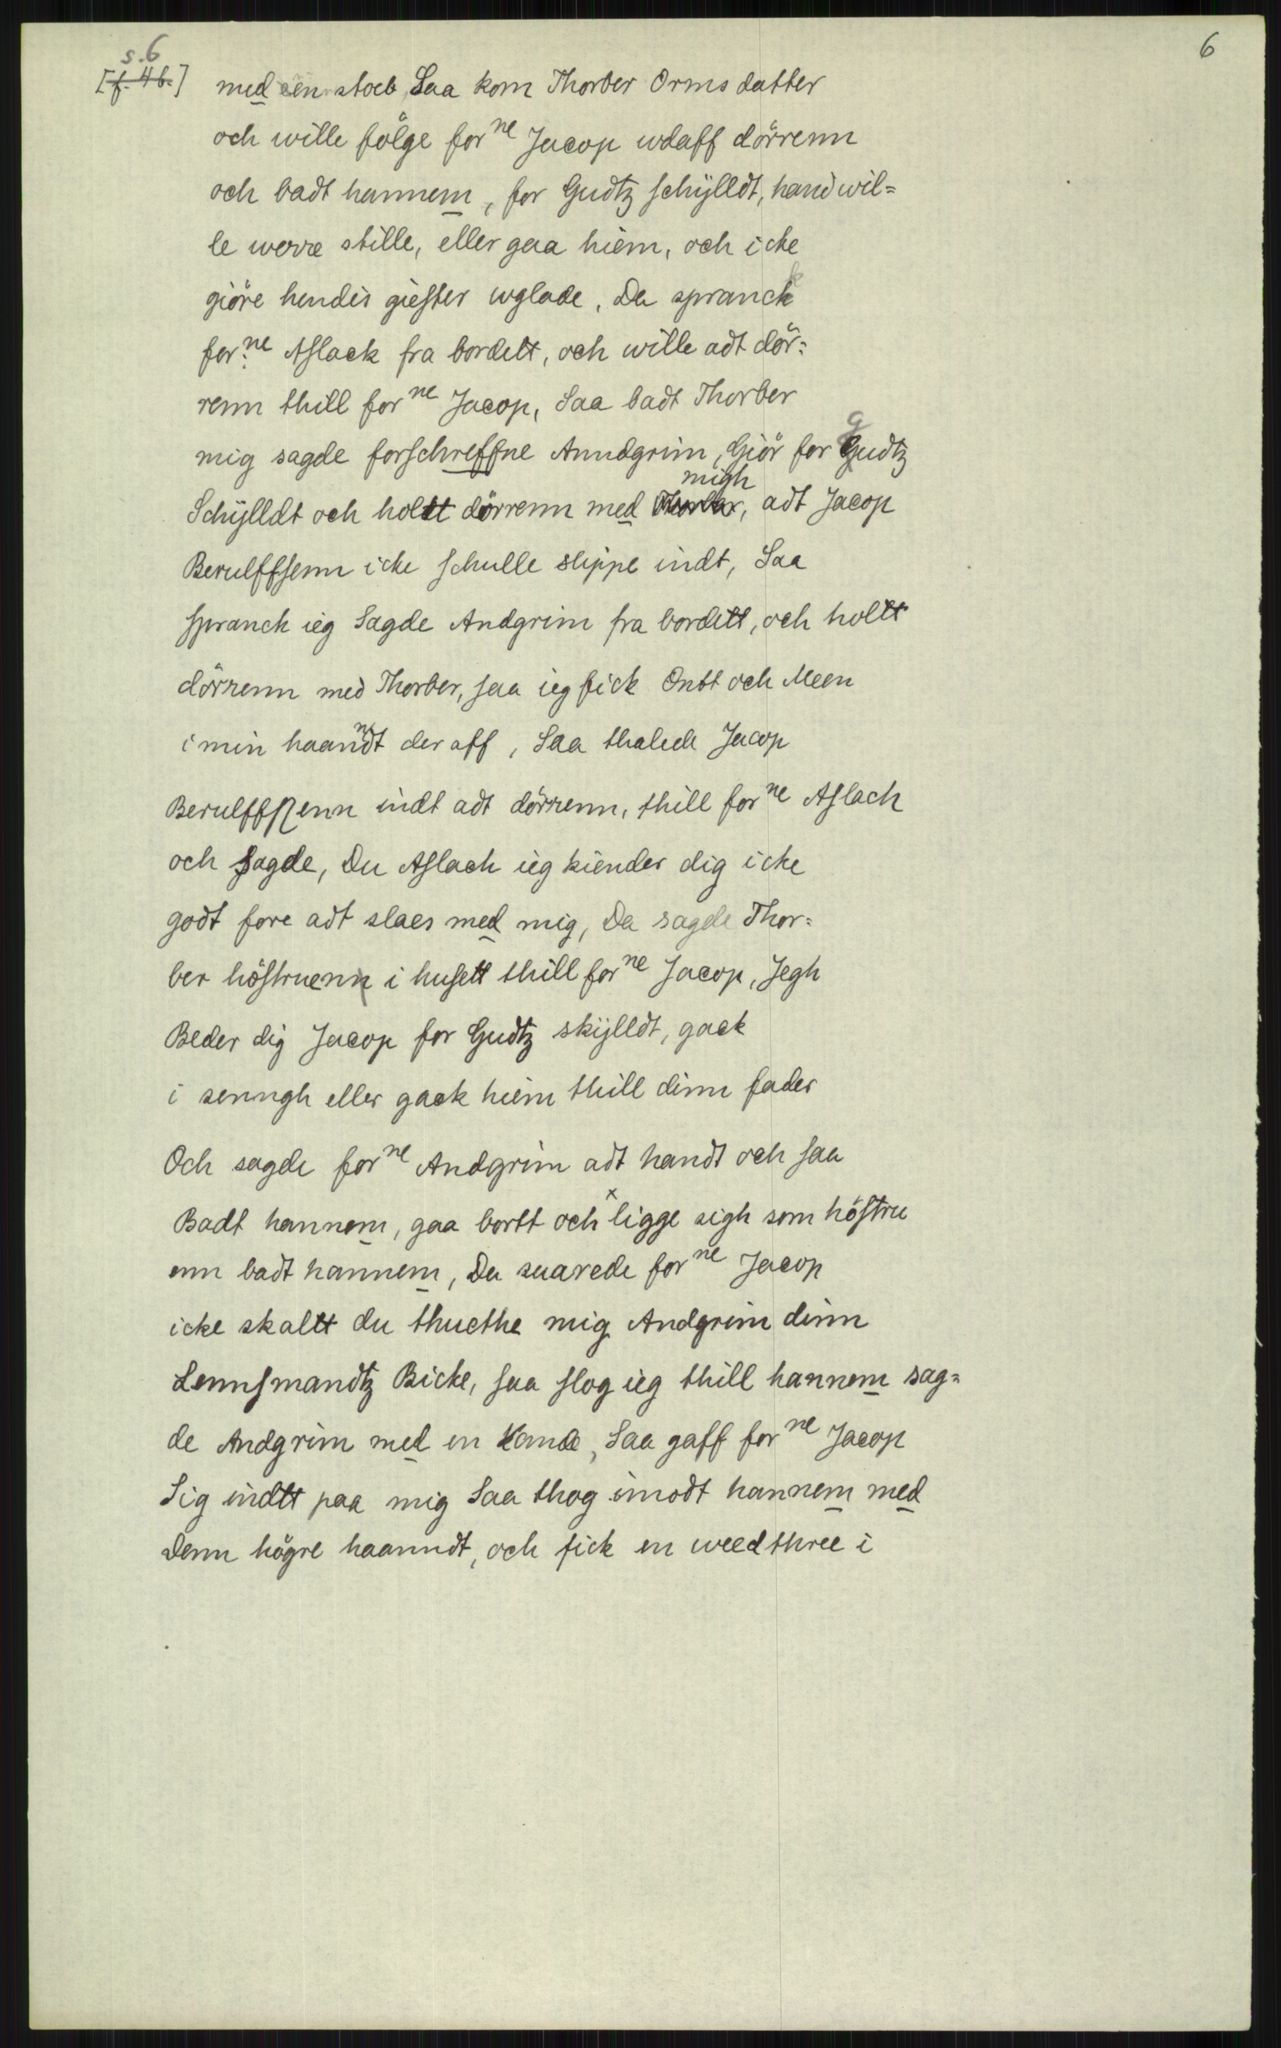 6
s. 6
[f. 4b.] med een stoeb, Saa kom Thorber Orms datter
och wille fölge forne Jacop wdaff dörrenn
och badt hannem, for Gudtz schÿlldt, hand wil=
le were stille, eller gaa hiem, och icke
giöre hendis giester wglade. Da spranck
for:ne Aslack fra bordett, och wille adt dör=
renn thill forne Jacop, Saa badt Thorber
mig sagde forschreffne Anndgrim, Giör for Gudtz
Schÿlldt och holtt dörrenn med Thorber migh, adt Jacop
Berulffsenn icke schulle slippe indt, Saa
spranck ieg Sagde Andgrim fra bordett, och holtt
dörrenn med Thorber, saa ieg fick Ontt och Meen
i min haanndt der aff, Saa thalede Jacop
Berulffssenn indt adt dörrenn, thill forne Aslach
och sagde, Du Aslach ieg kiender dig icke
godt fore adt slaes med mig, Da sagde Thor=
ber höstruenn i husett thill forne Jacop, Jegh
Beder dig Jacop for Gudtz skÿlldt, gack
i senngh eller gack hiem thill dinn fader
Och sagde forne Andgrim adt handt och saa
Badt hannem, gaa bortt och x ligge sigh som höstru
enn badt hannem, Da suarede forne Jacop
icke skaltt du thucthe mig Andgrim dinn
Lennsmandtz Bicke, saa slog ieg thill hannem sag=
de Andgrim med en Kande, Saa gaff forne Jacop
Sig indtt paa mig Saa thog imodt hannem med
Denn högre haanndt, och fick en weedthree i